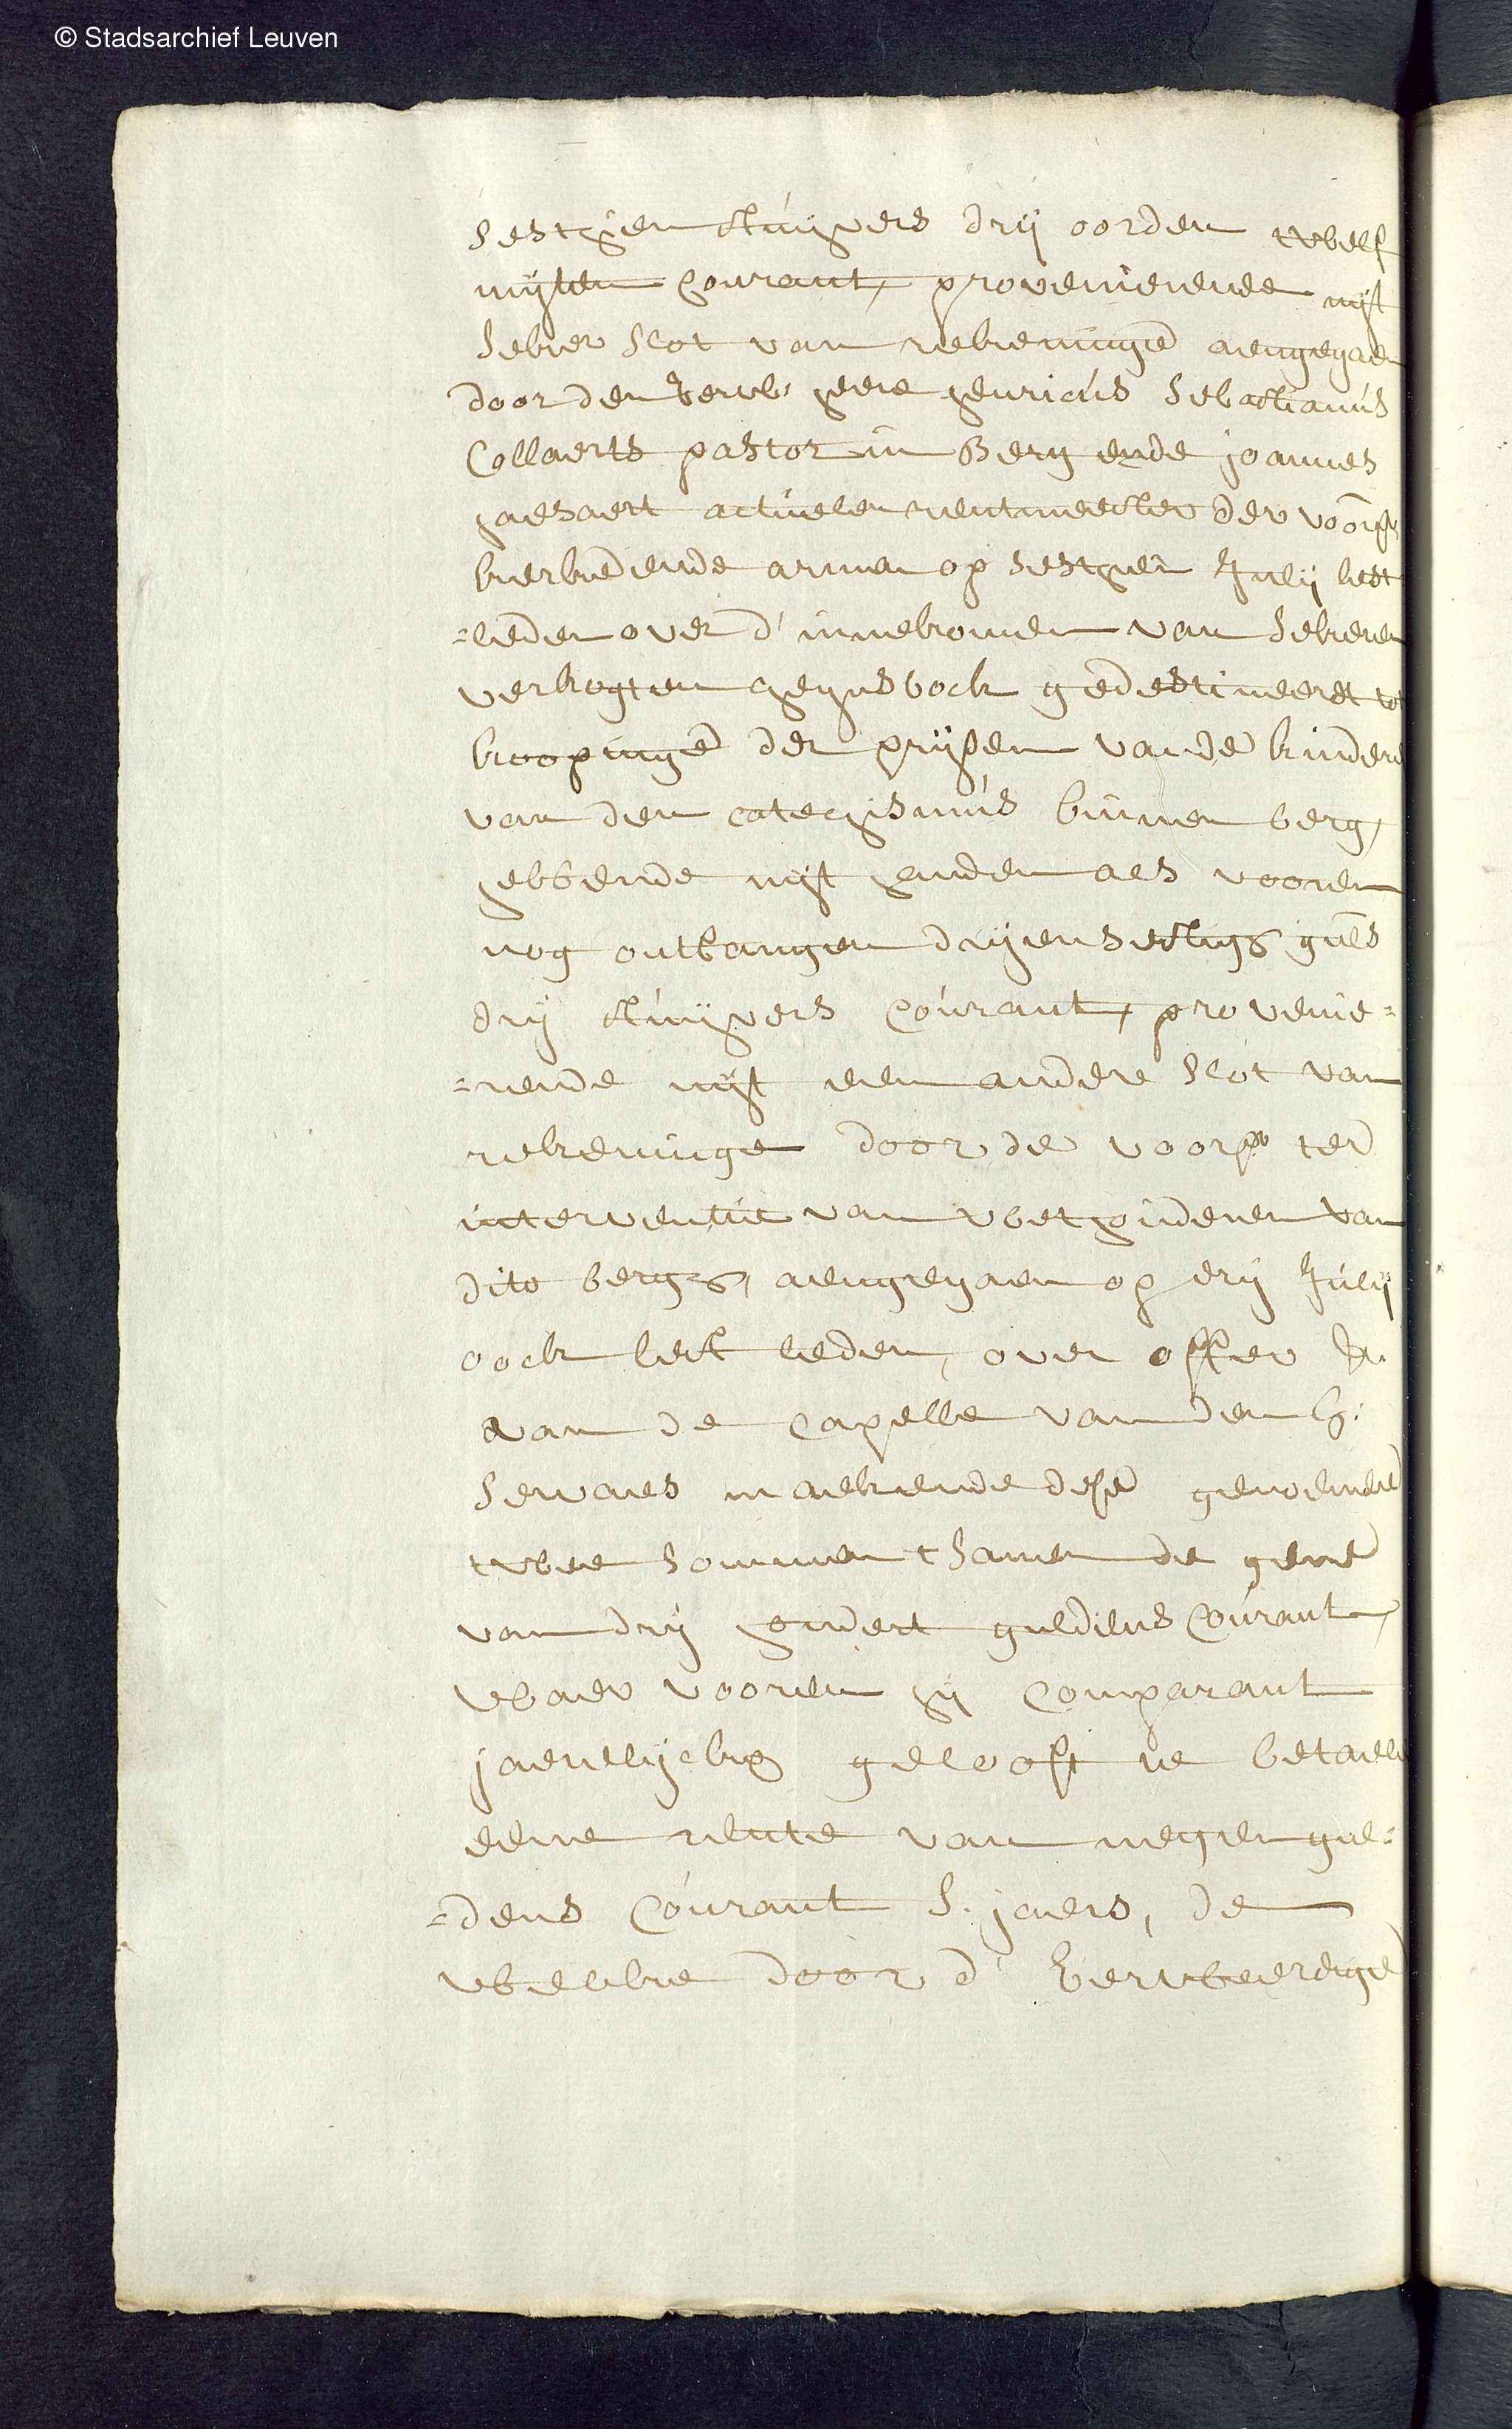 © Stadsarchief Leuven
Sesthien stuijvers drij oorden twelf
mijten Courant, provenierende uijt
seker slot van rekeninge aengegaen
door den Eerw: heere henricus Sebastianus
Collaerts pastor in Berg ende joannes
haesaert actuelen rentmeester der voors:
kerke ende armen op sesthien Julij lest
=leden over d' innekomen van sekeren
verkogten chynsboek gedestineert tot
koopinge der prijsen van de kindere
van den catechismus binnen berg,
hebbende uijt handen als vooren
nog ontfangen drijensestigh guls
drij stuijvers Courant, provenie=
=rende uijt een andere slot van
rekeninge door de voors: ter
interventie van wethouderen van
dito bergh, aengegaen op drij Julij
oock lest leden, over offer
van de capelle van den h:
Servaes maekende dese genoemde
twee sommen tsamen de gene
van drij hondert guldens Courant,
waer vooren hij Comparant
jaerelijckx gelooft te betaelen
eene rente van negen gul=
=dens Courant s. jaers, de
welke door d' Eerweerdige